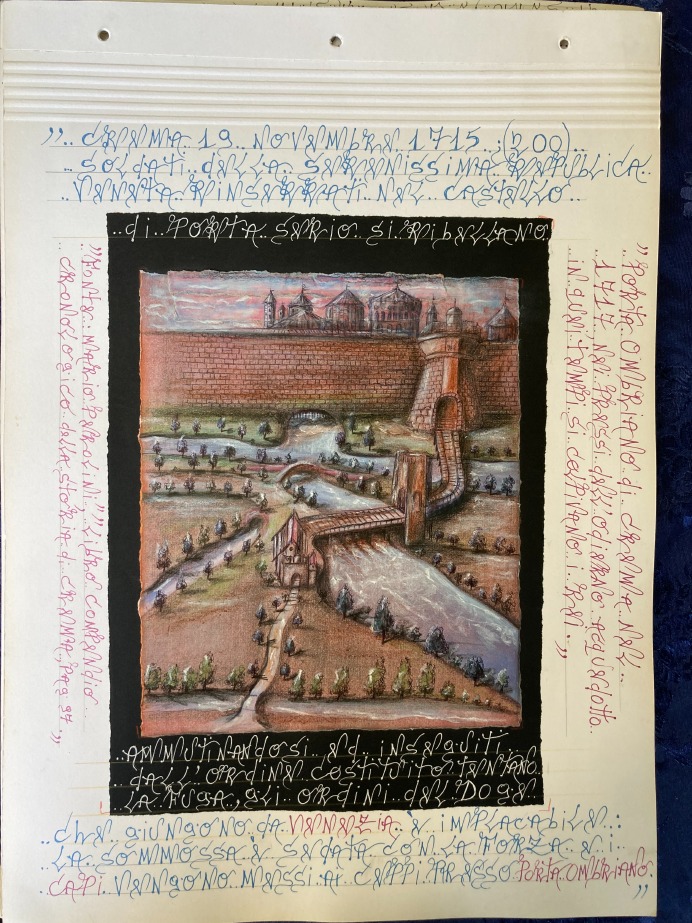 ”.. CREMA 19 NOVEMBRE 1715 ; (200)..
.. SOLDATI DELLA SERENISSIMA REPUBLICA..
.. VENETA RINSERRATI NEL CASTELLO..
..di PORTA SERIO Si RibELLANO
”FONTE: MARIO PEROLINI: ”LIBRO COMPENDIO
CRONOLOGICO dELLA STORIA di CREMA, PAG 97.”
”PORTA OMBRIANO di CREMA NEL..
..1717 NEI PRESSI dELL'OdiERNO ACQUEdOTTO.
IN QUEI TEMPI Si COLTIVANO I
AMMUTINANDOSI.. Ed.. INSEGUITI..
DALL'ORDINE COSTITUITO TENTANO
LA FUGA, GLI ORDINI DEL DOGE
CHE GIUNGONO DA VENEZIA È IMPLACABILE:
LA SOMMOSSA È SEDATA CON LA FORZA E I
CAPI VENGONO MESSI AI CEPPI PRESSO PORTA OMBRIANO.”